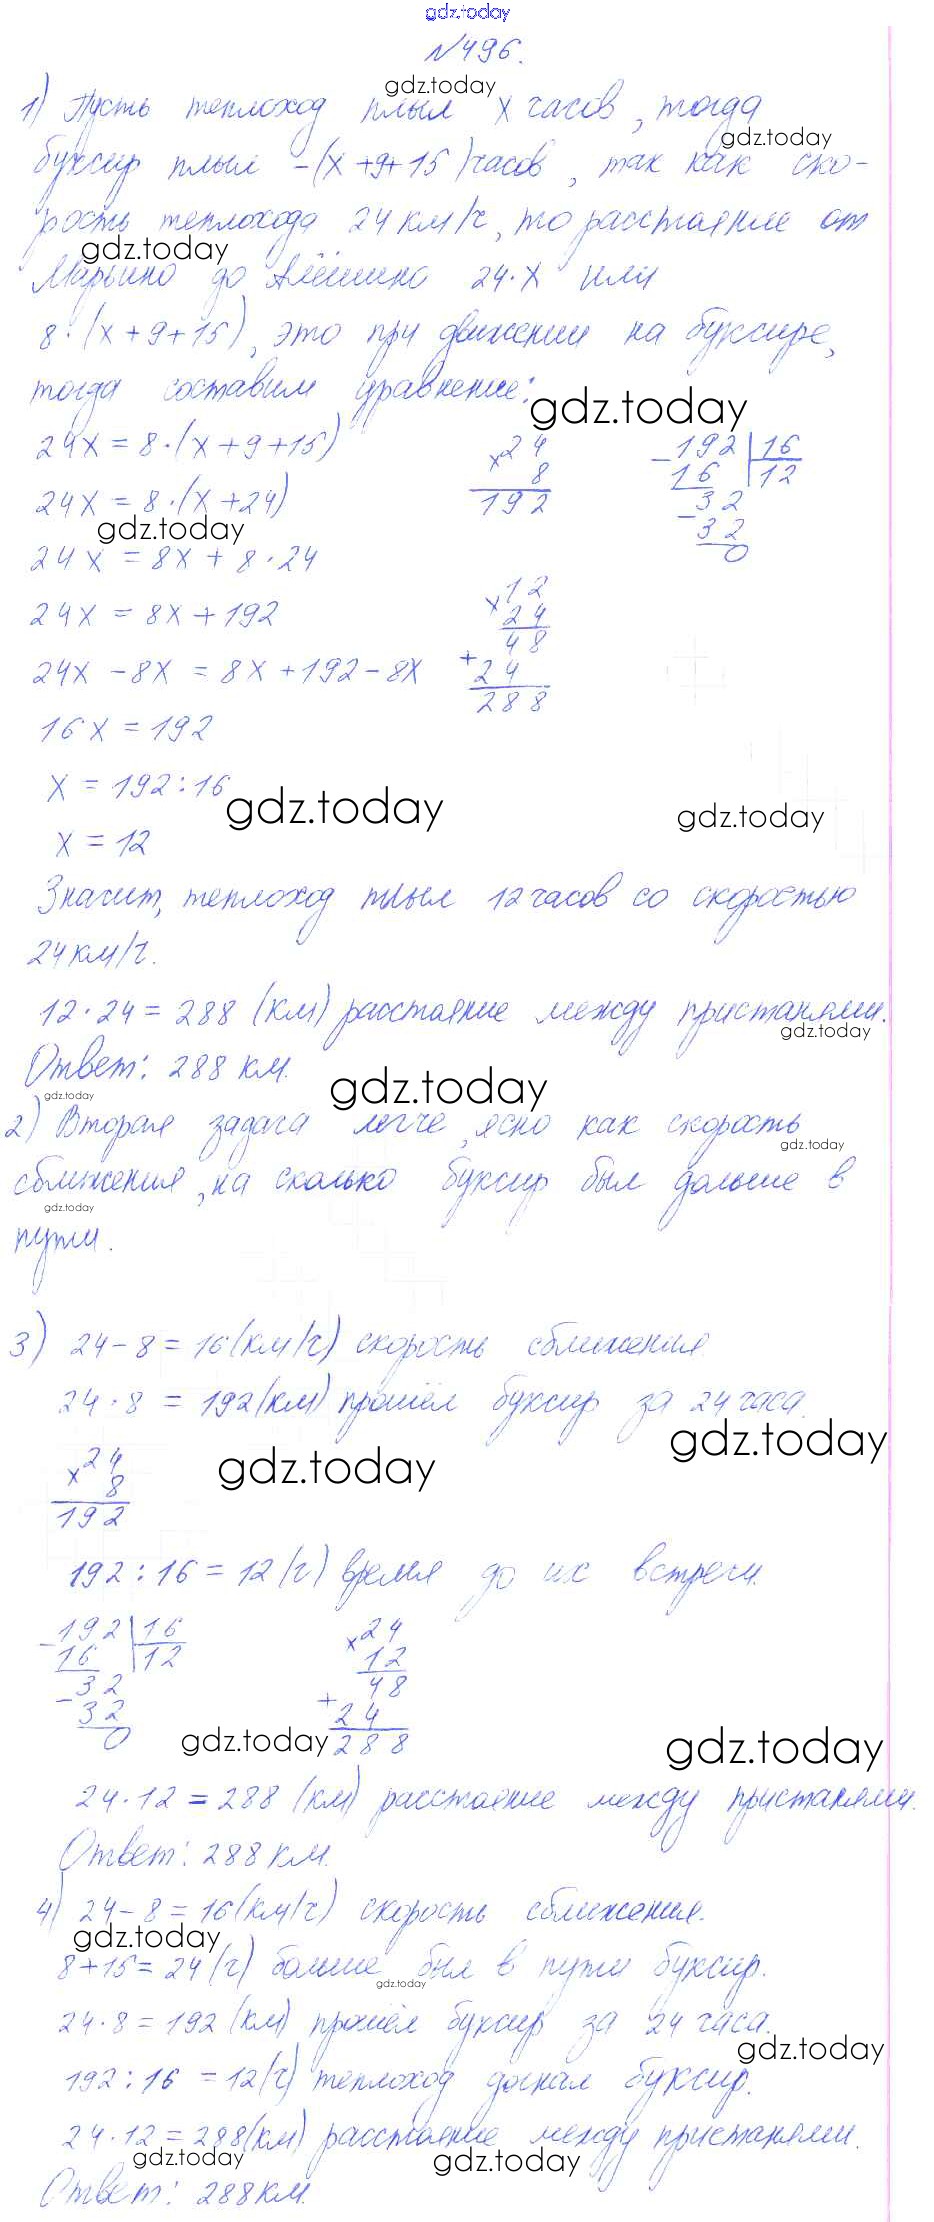 gdz.today
№496.
1) Пусть теплоход плыл x часов, тогда
буксир плыл -(x+9+15) часов, так как ско-
рость теплохода 24 км/ч, то расстояние от
Марьино до Алёшино 24·x или
8·(x+9+15), это при движении на буксире,
тогда составим уравнение:
24x = 8·(x+9+15)
24x = 8·(x+24)
24x = 8x + 8·24
24x = 8x + 192
24x - 8x = 8x + 192 - 8x
16x = 192
x = 192:16
x = 12
×24
8
192
-192 | 16
16 | 12
32
-32
0
×12
24
48
+24
288
Значит, теплоход плыл 12 часов со скоростью
24 км/ч.
12·24 = 288 (км) расстояние между пристанями.
Ответ: 288 км.
2) Вторая задача легче, ясно как скорость
сближения, на сколько буксир был дольше в
пути.
3) 24-8 = 16 (км/ч) скорость сближения
24·8 = 192 (км) прошёл буксир за 24 часа.
×24
8
192
192:16 = 12 (ч) время до их встречи.
-192 | 16
16 | 12
32
-32
0
×24
12
48
+24
288
24·12 = 288 (км) расстояние между пристанями.
Ответ: 288 км.
4) 24-8 = 16 (км/ч) скорость сближения.
8+15 = 24 (ч) больше был в пути буксир.
24·8 = 192 (км) прошёл буксир за 24 часа.
192:16 = 12 (ч) теплоход догнал буксир.
24·12 = 288 (км) расстояние между пристанями.
Ответ: 288 км.